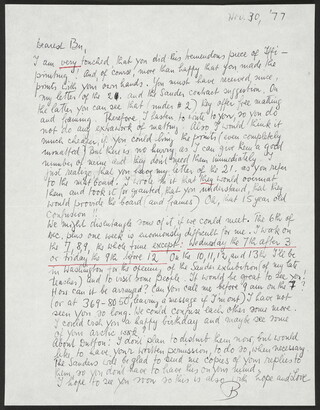 Nov. 30, '77
Dearest Ben,
I am very touched that you did this tremendous piece of
printing! And of course, more than happy that you made the
prints with your own hands. You must have received since,
my letter of the 21. and the Sander contract suggestion. On
the latter you can see that under #2) they offer free mating
and framing. Therefore I hasten to write to you, so you do
not do any extra work of matting. Also I would think it
much easier, if you could bring the prints (even completely
unmatted) But there is no hurry, as I can give them a good
number of mine and they don't need them immediately. I
just realize that you have my letter of the 21. as you refer
to the mat board. I wrote this that they would overmat
them and took it for granted, that you understand, that they
would provide the board (and frames) Oh, that 15 year old
confusion!!
We might disentangle some of it if we could meet. The 6th of
Dec. plus one week is enormously difficult for me. I work on
the 7, 8, 9, the whole time except: Wednesday the 7th after 3
or friday the 9th before 12. On the 10, 11, 12, and 13th I'll be
in Washington for the opening of the Sander exhibition (of my late
teacher) and to visit some people. It would be good to see you!
How can it be arranged? Can you call me before 9 am on the 7
or at 369-8050 (leaving a message if I'm out) I have not
seen you so long. We could confuse each other some more.
I could wish you happy birthday and maybe see some
of your arctic work
About Dutton: I don't plan to disturb them now, but would
like to have your written permission, to do so, when necessary.
The Sanders will be glad to send me copies of your replies to
them, so you don't have to have this on your mind.
I hope to see you soon so this is also with hope and Love
B